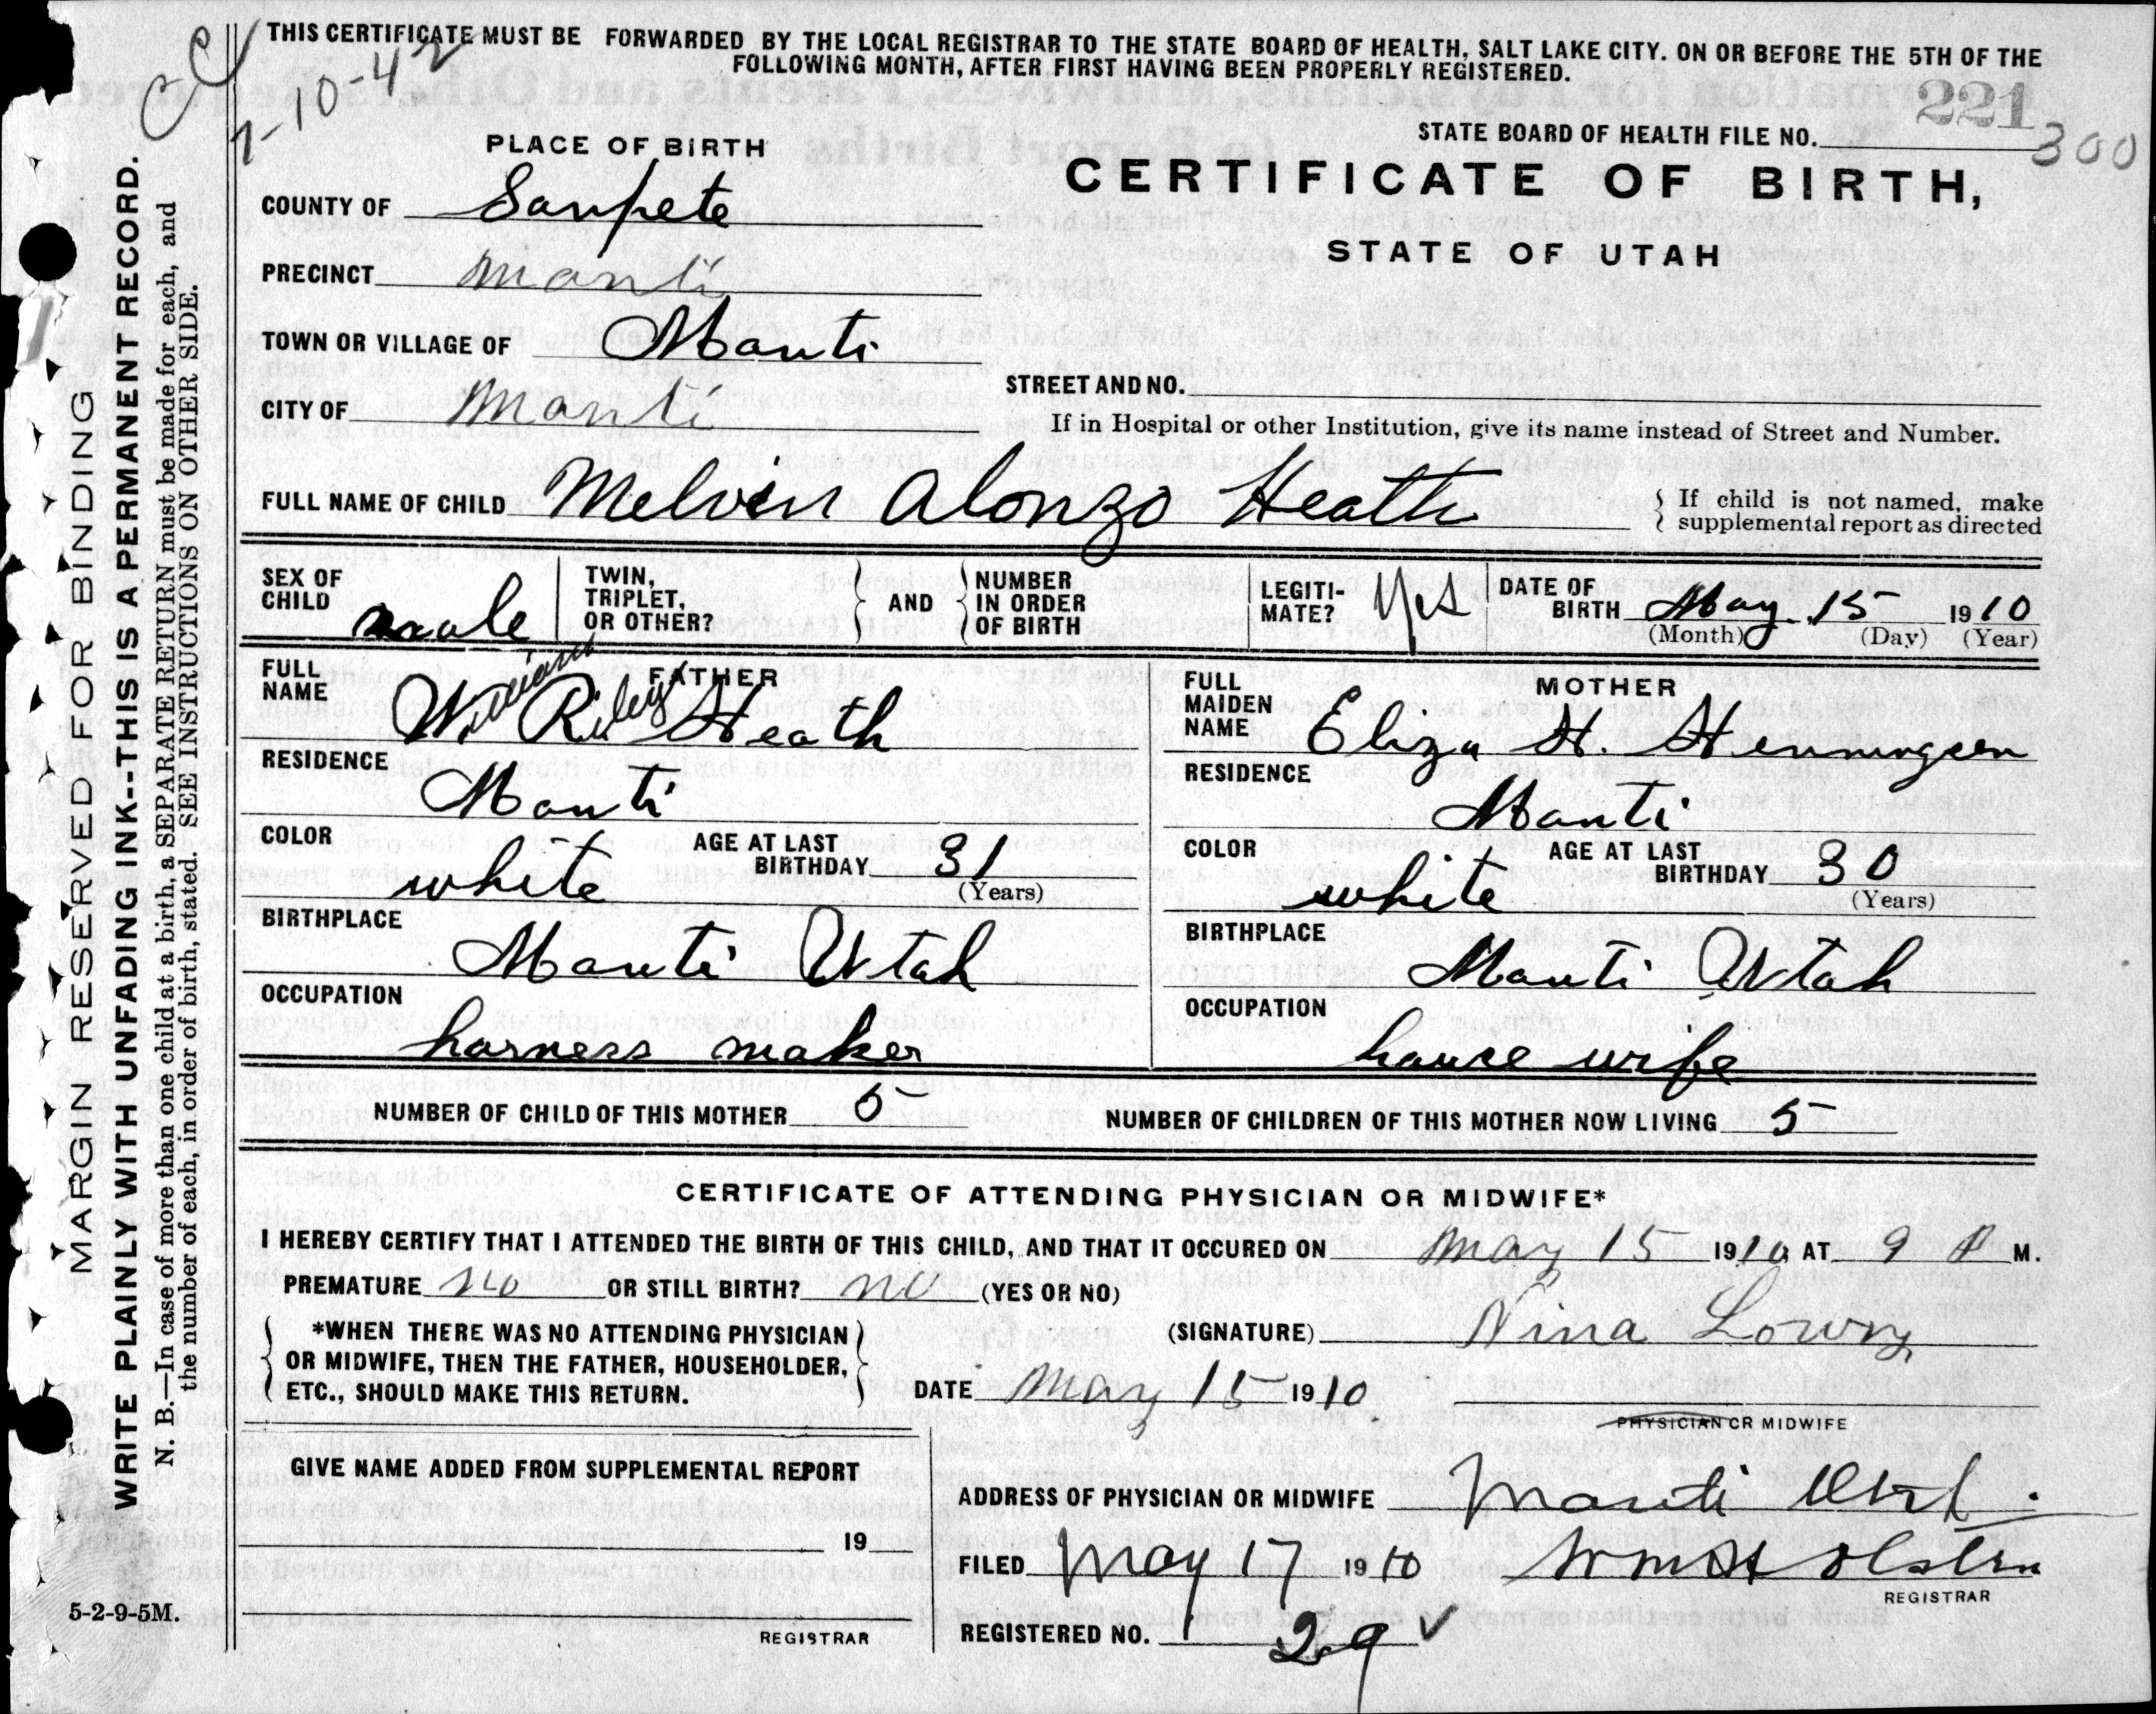 THIS CERTIFICATE MUST BE FORWARDED BY THE LOCAL REGISTRAR TO THE STATE BOARD OF HEALTH, SALT LAKE CITY. ON OR BEFORE THE 5TH OF THE
FOLLOWING MONTH, AFTER FIRST HAVING BEEN PROPERLY REGISTERED.
1-10-42
221
STATE BOARD OF HEALTH FILE NO. 300
PLACE OF BIRTH
CERTIFICATE OF BIRTH,
STATE OF UTAH
COUNTY OF Sanpete
PRECINCT Manti
TOWN OR VILLAGE OF Manti
STREET AND NO.
CITY OF Manti
If in Hospital or other Institution, give its name instead of Street and Number.
FULL NAME OF CHILD Melvin Alonzo Heath
If child is not named, make
supplemental report as directed
SEX OF CHILD male
TWIN, TRIPLET, OR OTHER?
AND
NUMBER IN ORDER OF BIRTH
LEGITI-MATE? Yes
DATE OF BIRTH May 15 1910
(Month) (Day) (Year)
FATHER
FULL NAME William Riley Heath
RESIDENCE Manti
COLOR white AGE AT LAST BIRTHDAY 31 (Years)
BIRTHPLACE Manti Utah
OCCUPATION harness maker
MOTHER
FULL MAIDEN NAME Eliza H. Henningsen
RESIDENCE Manti
COLOR white AGE AT LAST BIRTHDAY 30 (Years)
BIRTHPLACE Manti Utah
OCCUPATION house wife
NUMBER OF CHILD OF THIS MOTHER 5 NUMBER OF CHILDREN OF THIS MOTHER NOW LIVING 5
CERTIFICATE OF ATTENDING PHYSICIAN OR MIDWIFE*
I HEREBY CERTIFY THAT I ATTENDED THE BIRTH OF THIS CHILD, AND THAT IT OCCURED ON May 15 1910 AT 9 A M.
PREMATURE no OR STILL BIRTH? no (YES OR NO)
*WHEN THERE WAS NO ATTENDING PHYSICIAN
OR MIDWIFE, THEN THE FATHER, HOUSEHOLDER,
ETC., SHOULD MAKE THIS RETURN.
(SIGNATURE) Nina Lowry
DATE May 15 1910
PHYSICIAN OR MIDWIFE
GIVE NAME ADDED FROM SUPPLEMENTAL REPORT
19
REGISTRAR
ADDRESS OF PHYSICIAN OR MIDWIFE Manti Utah.
FILED May 17 1910 Wm H Olsten
REGISTRAR
REGISTERED NO. 29
5-2-9-5M.
MARGIN RESERVED FOR BINDING
WRITE PLAINLY WITH UNFADING INK--THIS IS A PERMANENT RECORD.
N. B.—In case of more than one child at a birth, a SEPARATE RETURN must be made for each, and
the number of each, in order of birth, stated. SEE INSTRUCTIONS ON OTHER SIDE.